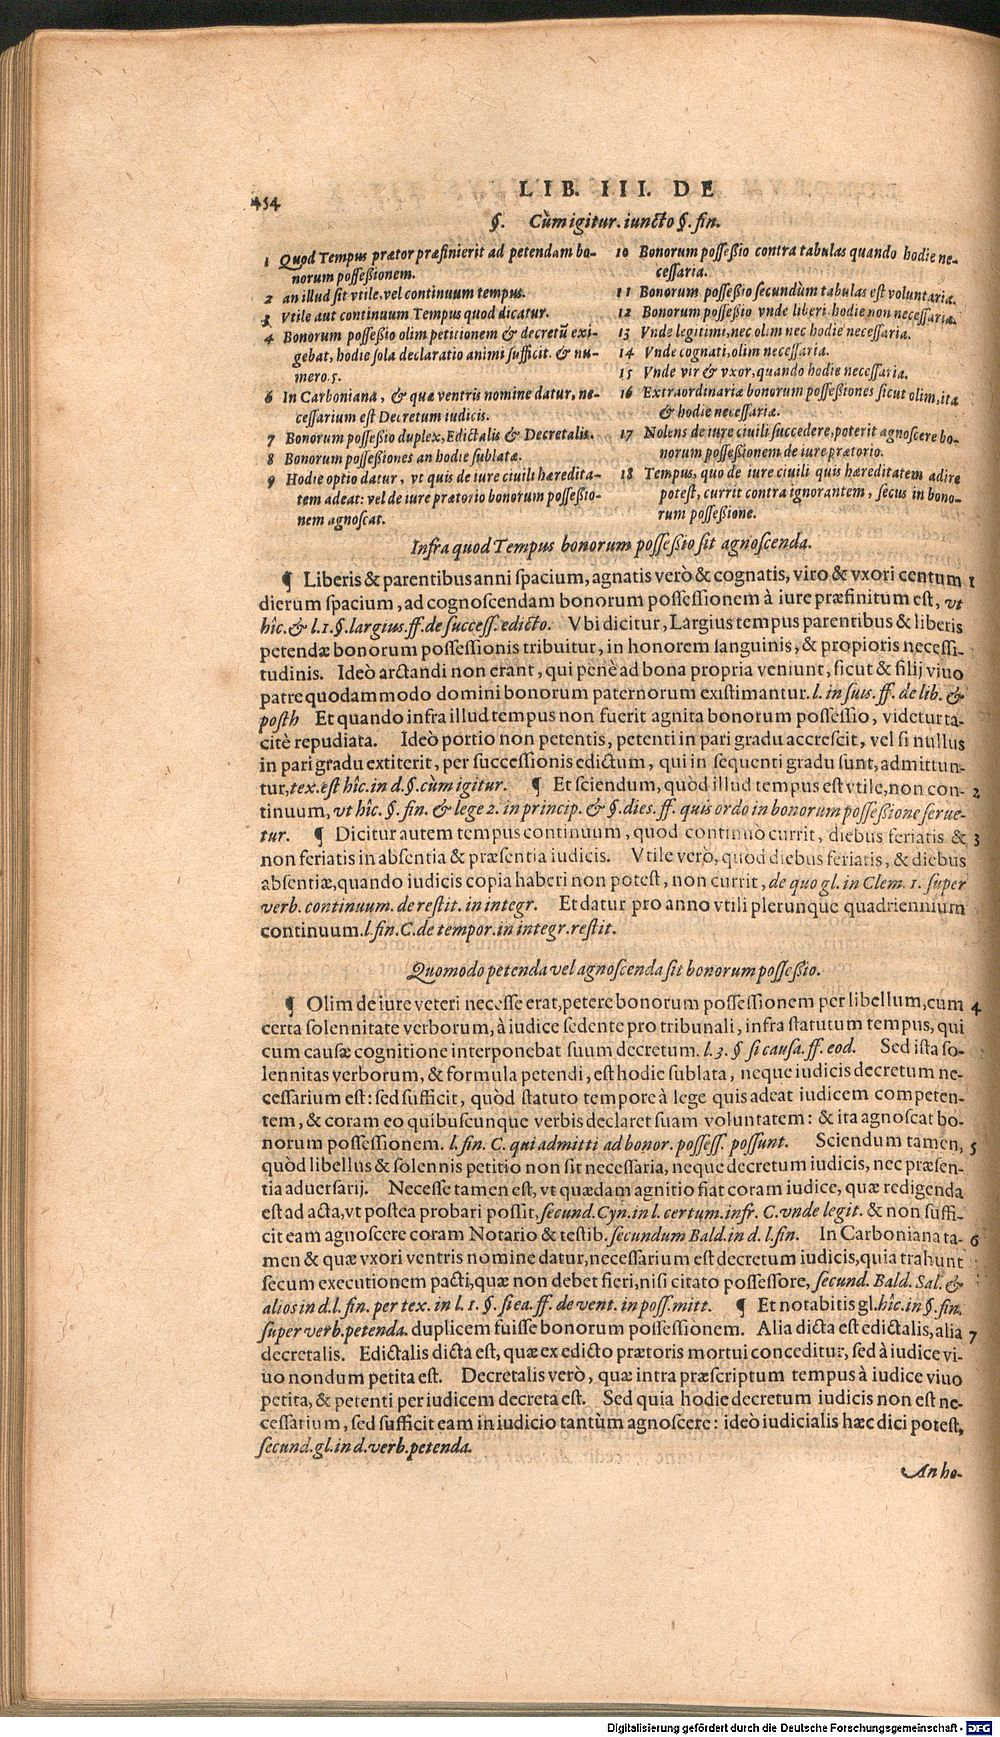 454
LIB. III. DE
§. Cùm igitur. iuncto §. fin.
1 Quod Tempus prætor præfinierit ad petendam bo-
norum possessionem.
2 an illud sit vtile, vel continuum tempus.
3 Vtile aut continuum Tempus quod dicatur.
4 Bonorum possessio olim petitionem & decretũ exi-
gebat, hodie sola declaratio animi sufficit. & nu-
mero 5.
6 In Carboniana, & quæ ventris nomine datur, ne-
cessarium est Decretum iudicis.
7 Bonorum possessio duplex, Edictalis & Decretalis.
8 Bonorum possessiones an hodie sublatæ.
9 Hodie optio datur, vt quis de iure ciuili hæredita-
tem adeat: vel de iure prætorio bonorum possessio-
nem agnoscat.
10 Bonorum possessio contra tabulas quando hodie ne-
cessaria.
11 Bonorum possessio secundùm tabulas est voluntaria.
12 Bonorum possessio vnde liberi hodie non necessaria.
13 Vnde legitimi, nec olim nec hodie necessaria.
14 Vnde cognati, olim necessaria.
15 Vnde vir & vxor, quando hodie necessaria.
16 Extraordinariæ bonorum possessiones sicut olim, ita
& hodie necessariæ.
17 Nolens de iure ciuili succedere, poterit agnoscere bo-
norum possessionem de iure prætorio.
18 Tempus, quo de iure ciuili quis hæreditatem adire
potest, currit contra ignorantem, secus in bono-
rum possessione.
Infra quod Tempus bonorum possessio sit agnoscenda.
¶ Liberis & parentibus anni spacium, agnatis verò & cognatis, viro & vxori centum 1
dierum spacium, ad cognoscendam bonorum possessionem à iure præfinitum est, vt
hîc. & l. 1. §. largius. ff. de success. edicto. Vbi dicitur, Largius tempus parentibus & liberis
petendæ bonorum possessionis tribuitur, in honorem sanguinis, & propioris necessi-
tudinis. Ideò arctandi non erant, qui penè ad bona propria veniunt, sicut & filij viuo
patre quodammodo domini bonorum paternorum existimantur. l. in suis. ff. de lib. &
posth Et quando infra illud tempus non fuerit agnita bonorum possessio, videtur ta-
citè repudiata. Ideò portio non petentis, petenti in pari gradu accrescit, vel si nullus
in pari gradu extiterit, per successionis edictum, qui in sequenti gradu sunt, admittun-
tur, tex. est hîc. in d. §. cùm igitur. ¶ Et sciendum, quòd illud tempus est vtile, non con- 2
tinuum, vt hîc. §. fin. & lege 2. in princip. & §. dies. ff. quis ordo in bonorum possessione serue-
tur. ¶ Dicitur autem tempus continuum, quod continuò currit, diebus feriatis & 3
non feriatis in absentia & præsentia iudicis. Vtile verò, quod diebus feriatis, & diebus
absentiæ, quando iudicis copia haberi non potest, non currit, de quo gl. in Clem. 1. super
verb. continuum. de restit. in integr. Et datur pro anno vtili plerunque quadriennium
continuum. l. fin. C. de tempor. in integr. restit.
Quomodo petenda vel agnoscenda sit bonorum possessio.
¶ Olim de iure veteri necesse erat, petere bonorum possessionem per libellum, cum 4
certa solennitate verborum, à iudice sedente pro tribunali, infra statutum tempus, qui
cum causæ cognitione interponebat suum decretum. l. 3. § si causa. ff. eod. Sed ista so-
lennitas verborum, & formula petendi, est hodie sublata, neque iudicis decretum ne-
cessarium est: sed sufficit, quòd statuto tempore à lege quis adeat iudicem competen-
tem, & coram eo quibuscunque verbis declaret suam voluntatem: & ita agnoscat bo-
norum possessionem. l. fin. C. qui admitti ad bonor. possess. possunt. Sciendum tamen, 5
quòd libellus & solennis petitio non sit necessaria, neque decretum iudicis, nec præsen-
tia aduersarij. Necesse tamen est, vt quædam agnitio fiat coram iudice, quæ redigenda
est ad acta, vt postea probari possit, secund. Cyn. in l. certum. infr. C. vnde legit. & non suffi-
cit eam agnoscere coram Notario & testib. secundum Bald. in d. l. fin. In Carboniana ta- 6
men & quæ vxori ventris nomine datur, necessarium est decretum iudicis, quia trahunt
secum executionem pacti, quæ non debet fieri, nisi citato possessore, secund. Bald. Sal. &
alios in d. l. fin. per tex. in l. 1. §. si ea. ff. de vent. in poss. mitt. ¶ Et notabitis gl. hîc. in §. fin.
super verb. petenda. duplicem fuisse bonorum possessionem. Alia dicta est edictalis, alia 7
decretalis. Edictalis dicta est, quæ ex edicto prætoris mortui conceditur, sed à iudice vi-
uo nondum petita est. Decretalis verò, quæ intra præscriptum tempus à iudice viuo
petita, & petenti per iudicem decreta est. Sed quia hodie decretum iudicis non est ne-
cessarium, sed sufficit eam in iudicio tantùm agnoscere: ideò iudicialis hæc dici potest,
secund. gl. in d. verb. petenda.
An ho-
Digitalisierung gefördert durch die Deutsche Forschungsgemeinschaft - DFG